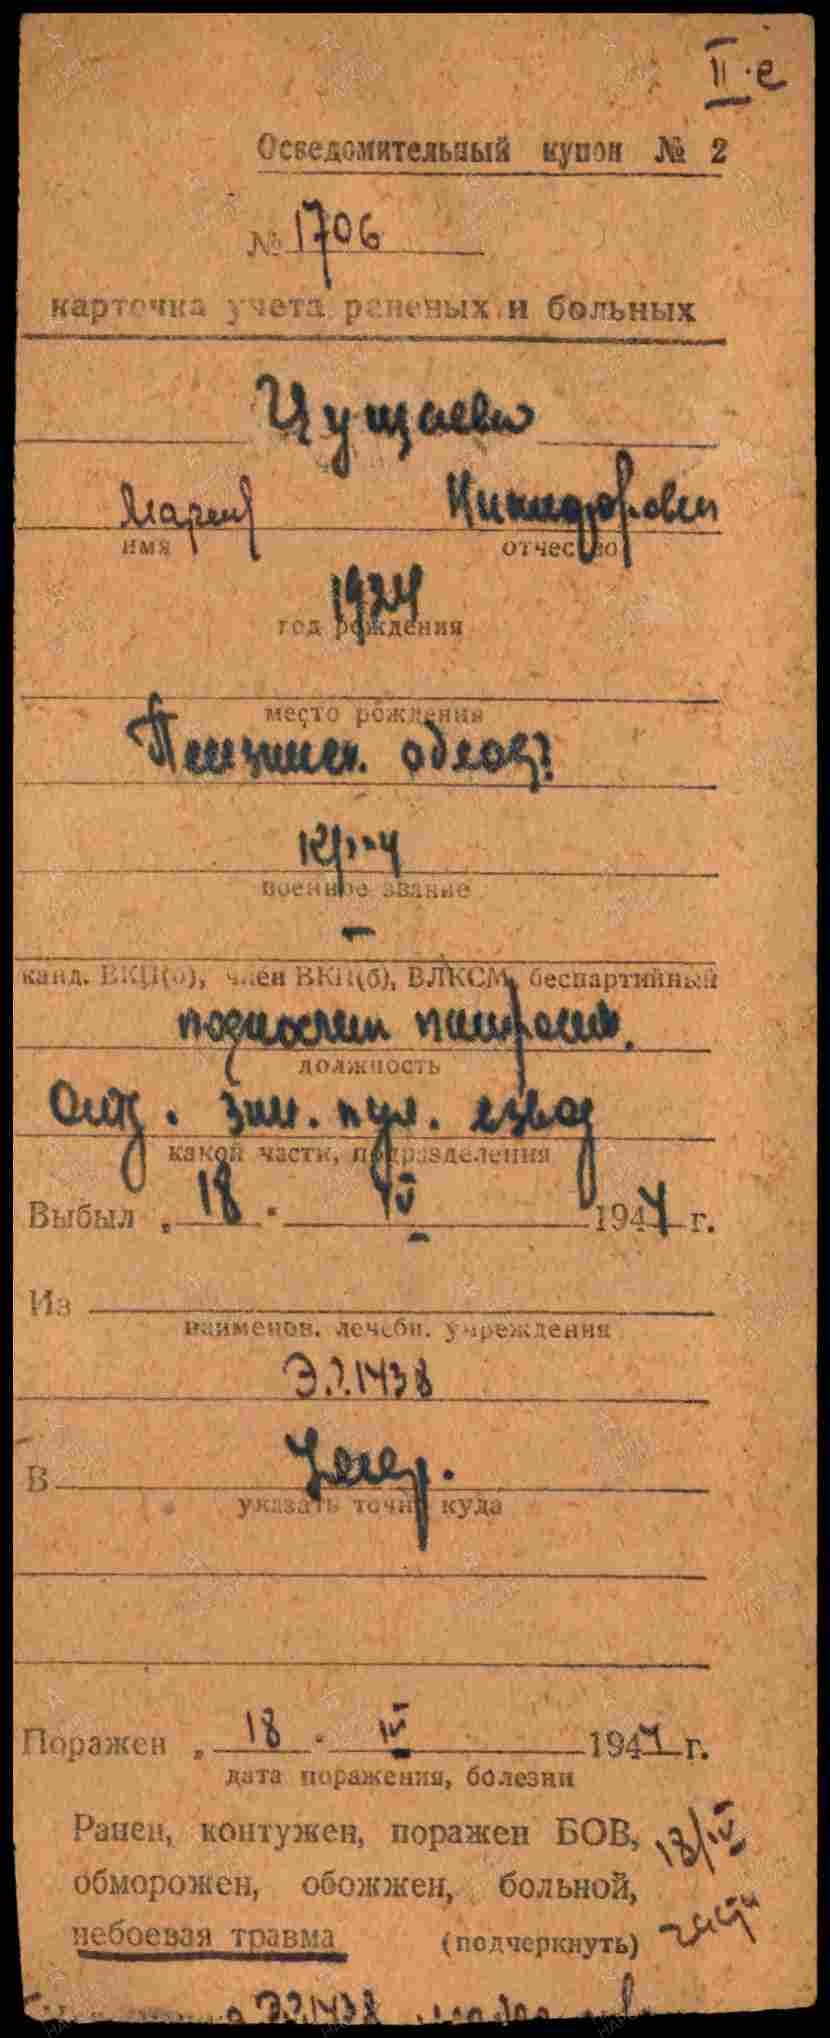 II-е
Осведомительный купон № 2
№ 1706
карточка учета раненых и больных
имя
отчество
1924
год рождения
место рождения
Пензинск. област
кр-ц
военное звание
–
канд. ВКП(б), член ВКП(б), ВЛКСМ, беспартийный
подносчик патронов.
должность
Отд. зен. пул. взвод
какой части, подразделения
Выбыл „ 18 " IV 1944 г.
Из
наименов. лечебн. учреждения
Э.Г. 1438
В
указать точно куда
Поражен „ 18 " IV 1944 г.
дата поражения, болезни
Ранен, контужен, поражен БОВ, 18/IV
обморожен, обожжен, больной,
небоевая травма (подчеркнуть)